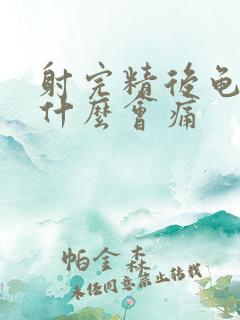 射完精後龟
什麼會痛
帕金森
未经同意禁止转载